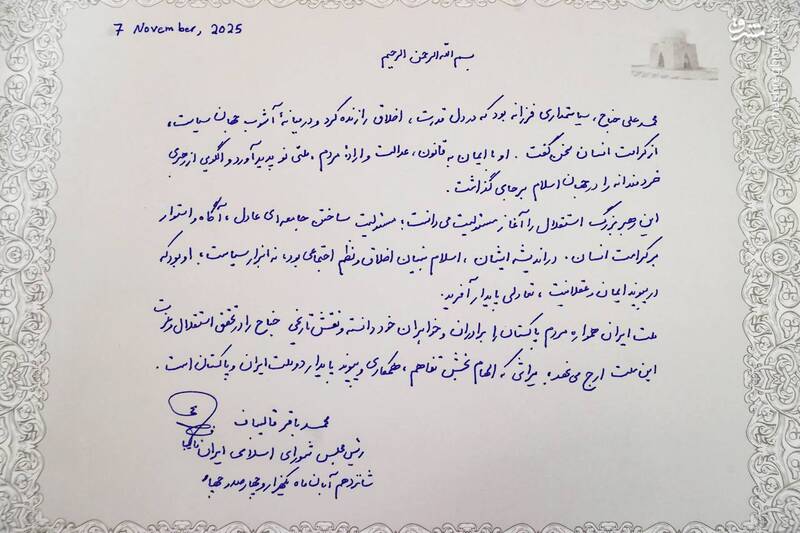 7 November, 2025
مشرق
بسم الله الرحمن الرحیم
محمد علی جناح، سیاستمداری فرزانه بود که در دل قدرت، اخلاق را زنده کرد و در میانهٔ آشوب جهان سیاست،
از کرامت انسان سخن گفت. او با ایمان به قانون، عدالت و ارادهٔ مردم، ملتی نو پدید آورد و الگویی از رهبری
خردمندانه را در جهان اسلام بر جای گذاشت.
این رهبر بزرگ استقلال را آغاز مسئولیت می‌دانست؛ مسئولیت ساختن جامعه‌ای عادل، آگاه و استوار
بر کرامت انسان. در اندیشه ایشان، اسلام بنیان اخلاق و نظم اجتماعی بود، نه ابزار سیاست؛ او بود که
در پیوند ایمان و عقلانیت، تعادلی پایدار آفرید.
ملت ایران همواره مردم پاکستان را برادران و خواهران خود دانسته و نقش تاریخی جناح را در تحقق استقلال و عزت
این ملت ارج می‌نهد؛ میراثی که الهام بخش تفاهم، همکاری و پیوند پایدار دو ملت ایران و پاکستان است.
محمد باقر قالیباف
رئیس مجلس شورای اسلامی ایران
شانزدهم آبان ماه یکهزار و چهارصد و چهار